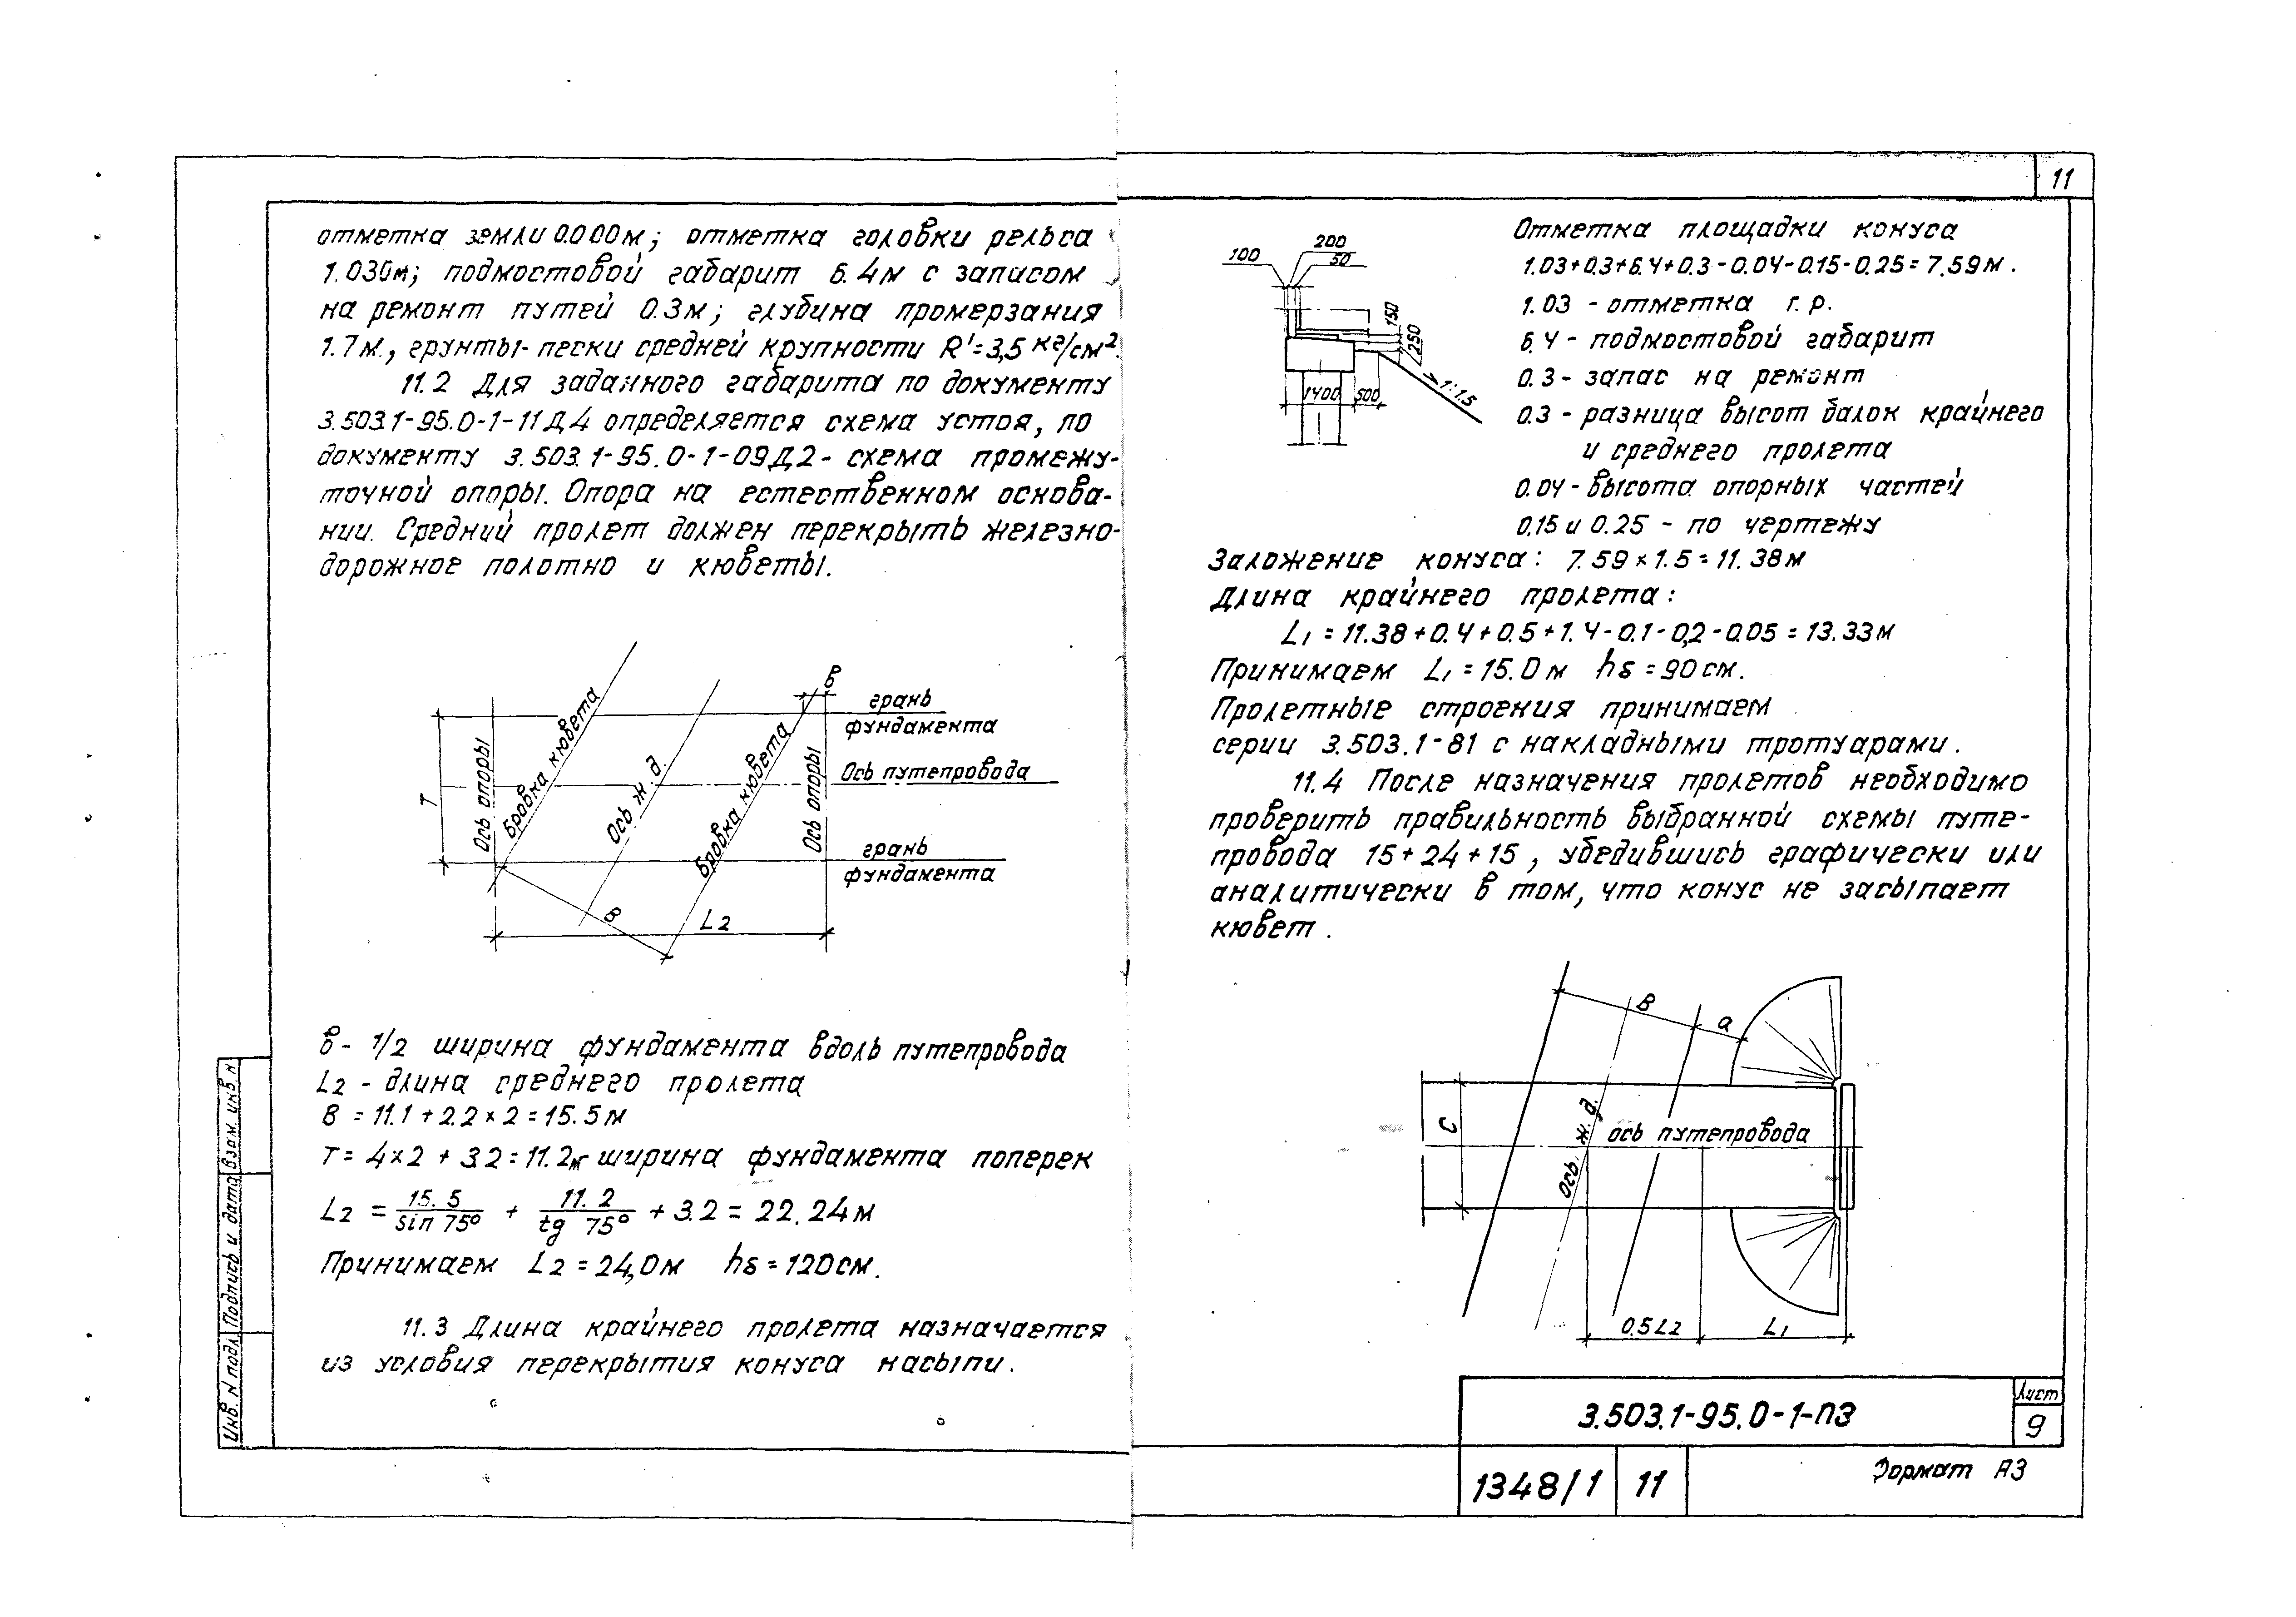 11
отметка земли 0.000м; отметка головки рельса
1.030м; подмостовой габарит 6.4м с запасом
на ремонт путей 0.3м; глубина промерзания
1.7м., грунты- пески средней крупности R'=3,5 кг/см².
11.2 Для заданного габарита по документу
3.503.1-95.0-1-11Д4 определяется схема устоя, по
документу 3.503.1-95.0-1-09Д2- схема промежу-
точной опоры. Опора на естественном основа-
нии. Средний пролет должен перекрыть железно-
дорожное полотно и кюветы.
в
грань
фундамента
Ось путепровода
грань
фундамента
Т
Ось опоры
Бровка кювета
Ось ж.д.
Бровка кювета
Ось опоры
В
L2
в - 1/2 ширина фундамента вдоль путепровода
L2 - длина среднего пролета
В = 11.1 + 2.2 × 2 = 15.5 м
Т = 4×2 + 3.2 = 11.2м ширина фундамента поперек
L2 = 15.5 / sin 75° + 11.2 / tg 75° + 3.2 = 22.24 м
Принимаем L2 = 24,0м hs = 120см.
11.3 Длина крайнего пролета назначается
из условия перекрытия конуса насыпи.
100
200
50
150
250
1:1.5
1400
500
Отметка площадки конуса
1.03+0.3+6.4+0.3-0.04-0.15-0.25=7.59м.
1.03 - отметка г.р.
6.4 - подмостовой габарит
0.3 - запас на ремонт
0.3 - разница высот балок крайнего
и среднего пролета
0.04 - высота опорных частей
0,15 и 0.25 - по чертежу
Заложение конуса: 7.59 × 1.5 = 11.38 м
Длина крайнего пролета:
L1 = 11.38 + 0.4 + 0.5 + 1.4 - 0.1 - 0,2 - 0.05 = 13.33м
Принимаем L1 = 15.0 м hs = 90 см.
Пролетные строения принимаем
серии 3.503.1-81 с накладными тротуарами.
11.4 После назначения пролетов необходимо
проверить правильность выбранной схемы путе-
провода 15 + 24 + 15, убедившись графически или
аналитически в том, что конус не засыпает
кювет.
В
а
С
Ось ж.д.
ось путепровода
0.5 L2
L1
Инв. N подл.
Подпись и дата
Взам. инв. N
3.503.1-95.0-1-ПЗ
Лист
9
1348/1
11
Формат А3